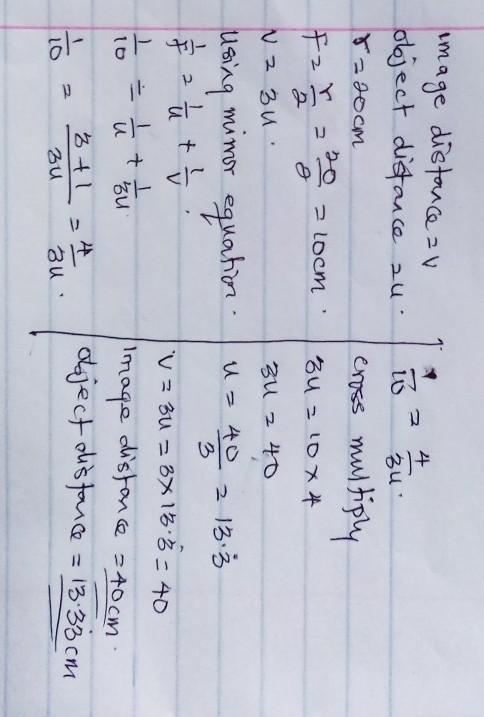 image distance = v
object distance = u.
r = 20cm
F = r/2 = 20/2 = 10cm.
V = 3u.
Using mirror equation.
1/F = 1/u + 1/v.
1/10 = 1/u + 1/3u.
1/10 = 3+1/3u = 4/3u.
1/10 = 4/3u.
cross multiply
3u = 10 x 4
3u = 40
u = 40/3 = 13.3
V = 3u = 3 x 13.3 = 40
Image distance = 40cm.
object distance = 13.33cm